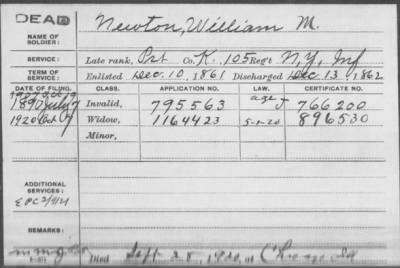 DEAD
Newton, William M.
NAME OF SOLDIER:
SERVICE: Late rank, Pvt Co. K, 105 Reg't N.Y. Inf
TERM OF SERVICE: Enlisted Dec. 10, 1861 Discharged Dec 13, 1862
DATE OF FILING. CLASS. APPLICATION NO. LAW. CERTIFICATE NO.
1890 July 7 Invalid, 795563 age 766200
1920 Oct 7 Widow, 1164423 5-1-20 896530
Minor,
ADDITIONAL SERVICES:
EPC 2/4/21
REMARKS:
Died Sept 28, 1920, at